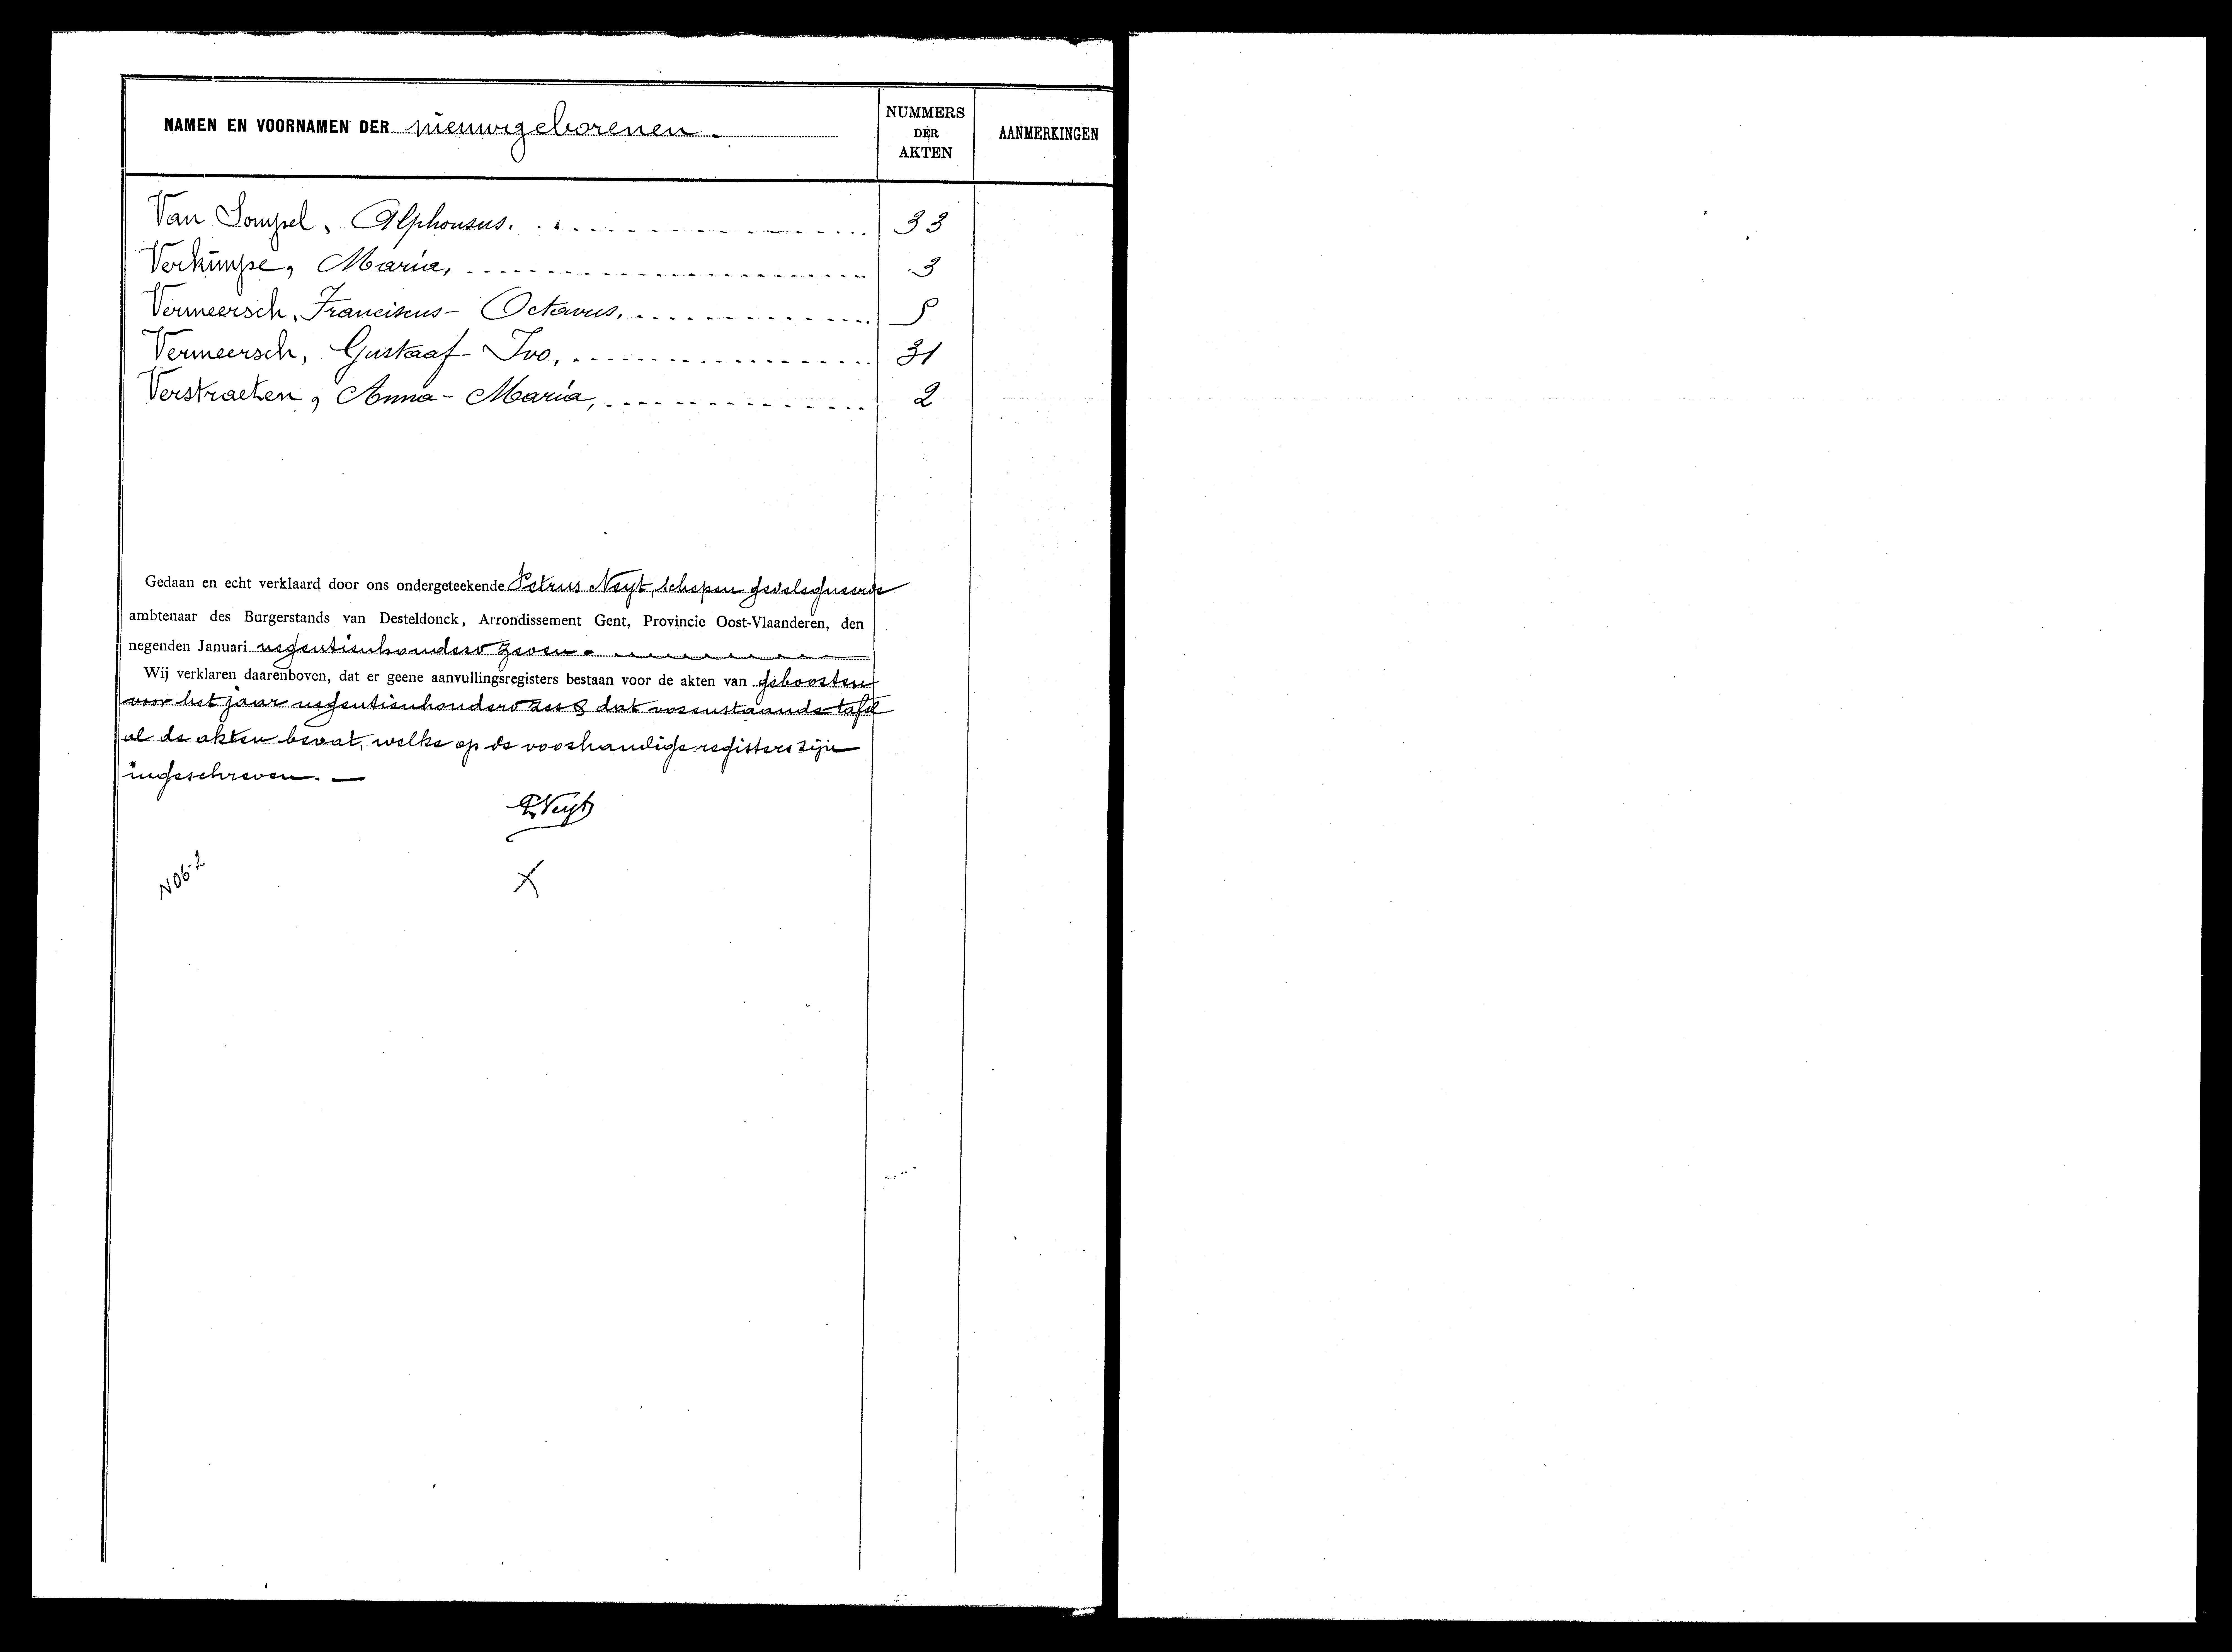 NAMEN EN VOORNAMEN DER nieuwgeborenen.
NUMMERS
DER
AKTEN
AANMERKINGEN
Van Lompel, Alphonsus. 33
Verkimpe, Maria, 3
Vermeersch, Franciscus-Octavus, 5
Vermeersch, Gustaaf-Ivo, 31
Verstraeten, Anna-Maria, 2
Gedaan en echt verklaard door ons ondergeteekende Petrus Neyt, schepen gedelegueerde
ambtenaar des Burgerstands van Desteldonck, Arrondissement Gent, Provincie Oost-Vlaanderen, den
negenden Januari negentienhonderd zeven.
Wij verklaren daarenboven, dat er geene aanvullingsregisters bestaan voor de akten van geboorten
voor het jaar negentienhonderd zes & dat vorenstaande tafel
al de akten bevat, welke op de voorhandige registers zijn
ingeschreven.
P. Neyt
X
N06-2